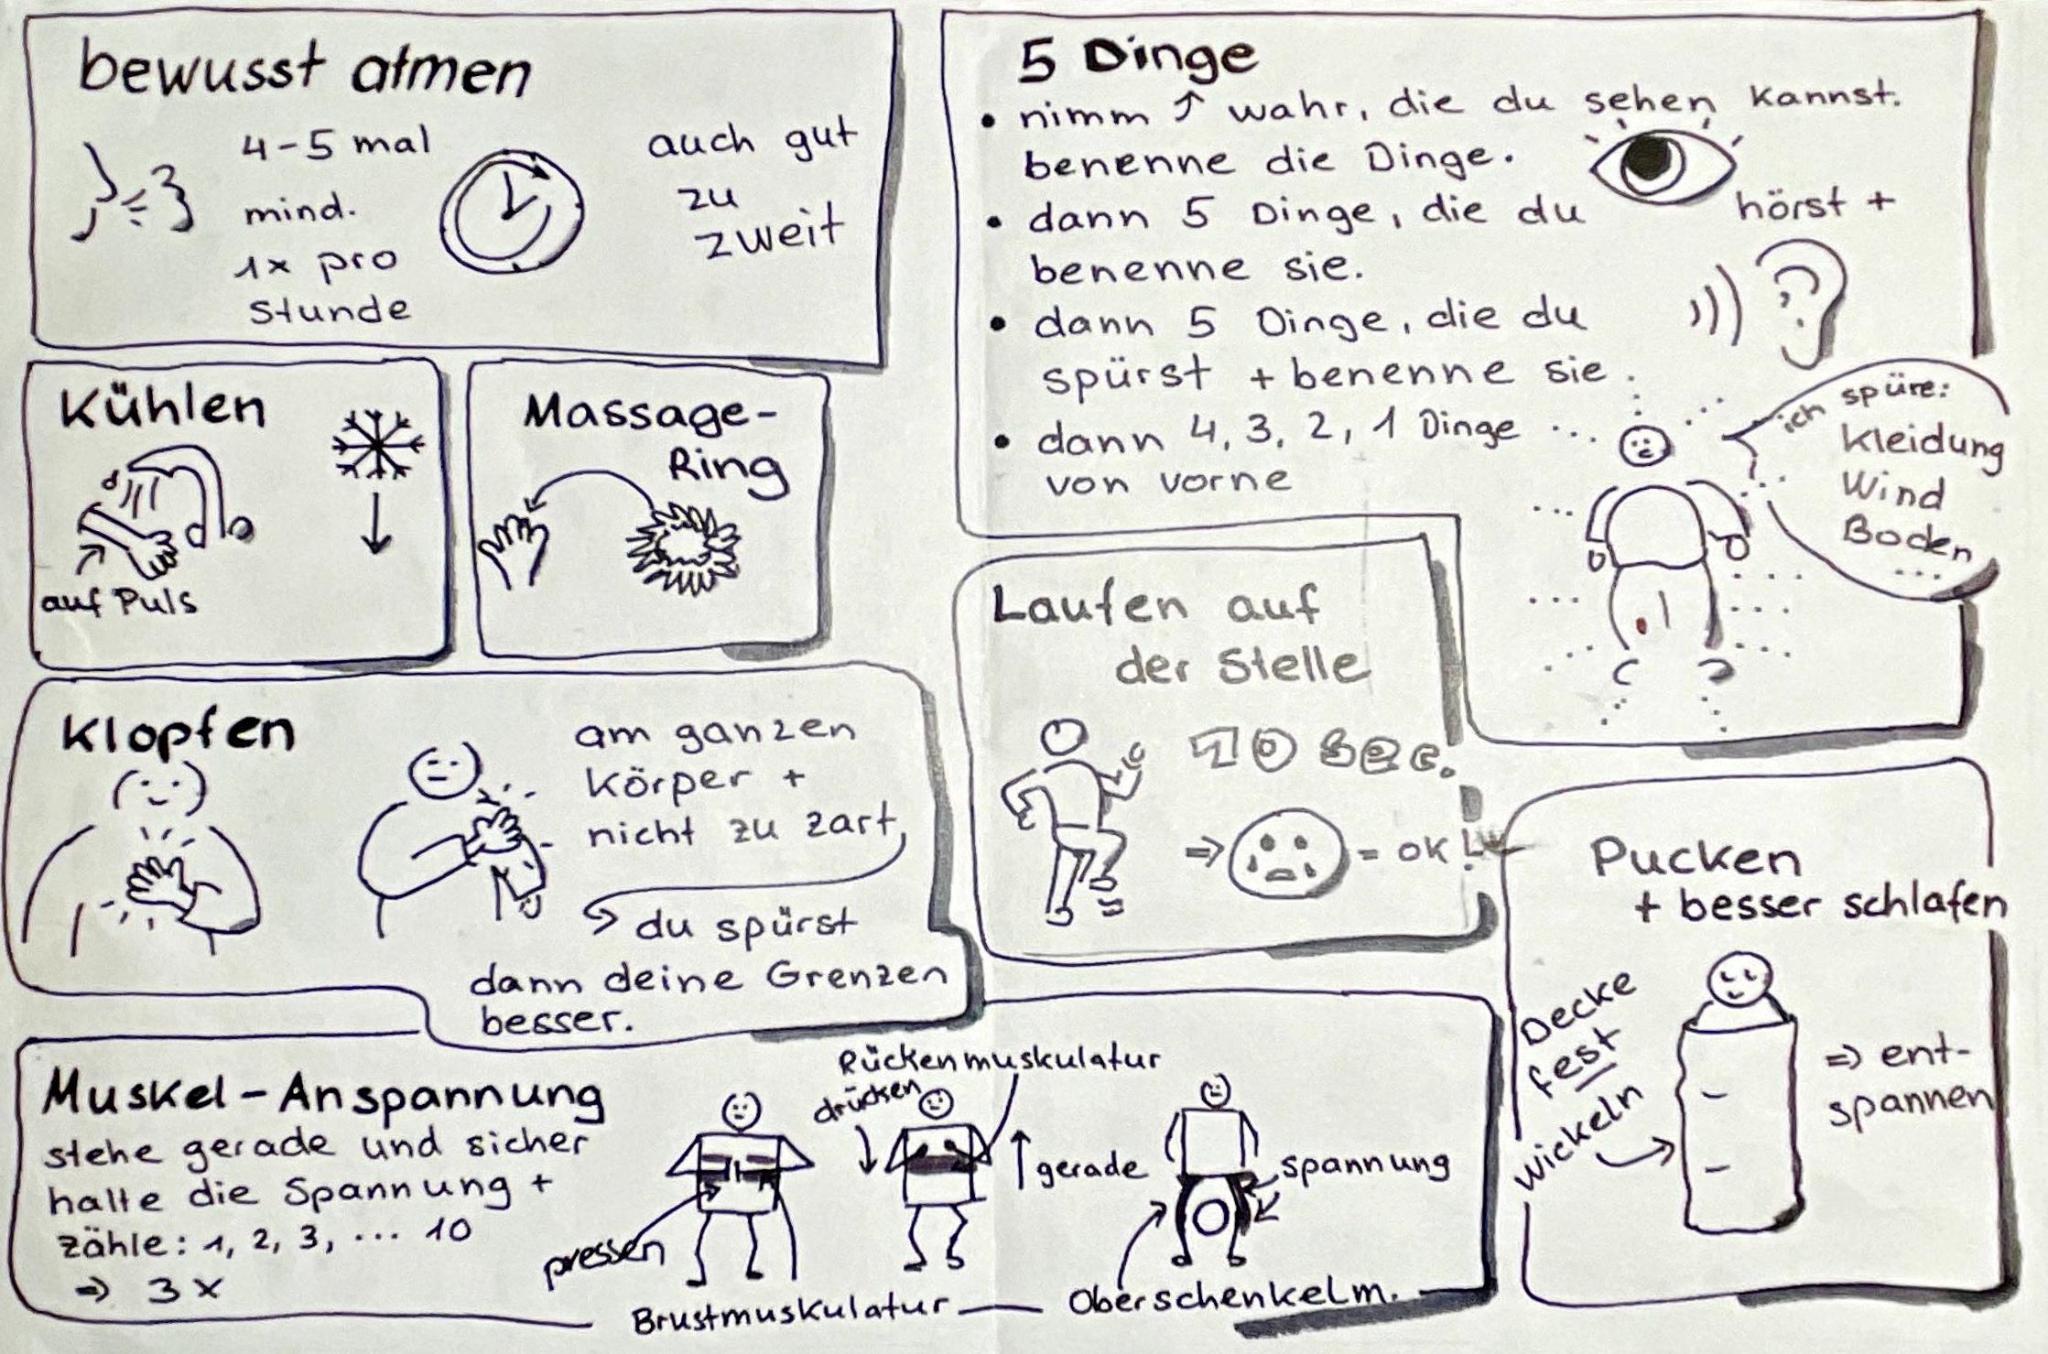 bewusst atmen
4-5 mal
mind.
1x pro
Stunde
auch gut
zu
zweit
5 Dinge
• nimm ↑ wahr, die du sehen kannst.
benenne die Dinge.
• dann 5 Dinge, die du hörst +
benenne sie.
• dann 5 Dinge, die du
spürst + benenne sie.
• dann 4, 3, 2, 1 Dinge ...
von vorne
ich spüre:
Kleidung
Wind
Boden
...
Kühlen
auf Puls
Massage-
Ring
Laufen auf
der Stelle
10 sec.
⇒ = ok!
Klopfen
am ganzen
Körper +
nicht zu zart,
du spürst
dann deine Grenzen
besser.
Pucken
+ besser schlafen
Decke
fest
wickeln
⇒ ent-
spannen
Muskel-Anspannung
stehe gerade und sicher
halte die Spannung +
zähle: 1, 2, 3, ... 10
⇒ 3x
pressen
Brustmuskulatur
Rückenmuskulatur
drücken
gerade
Spannung
Oberschenkelm.